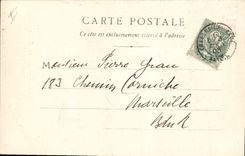 CARTE POSTALE
Ce côté est exclusivement réservé à l'adresse
Monsieur Pierre Gran
183 Chemin Corniche
Marseille